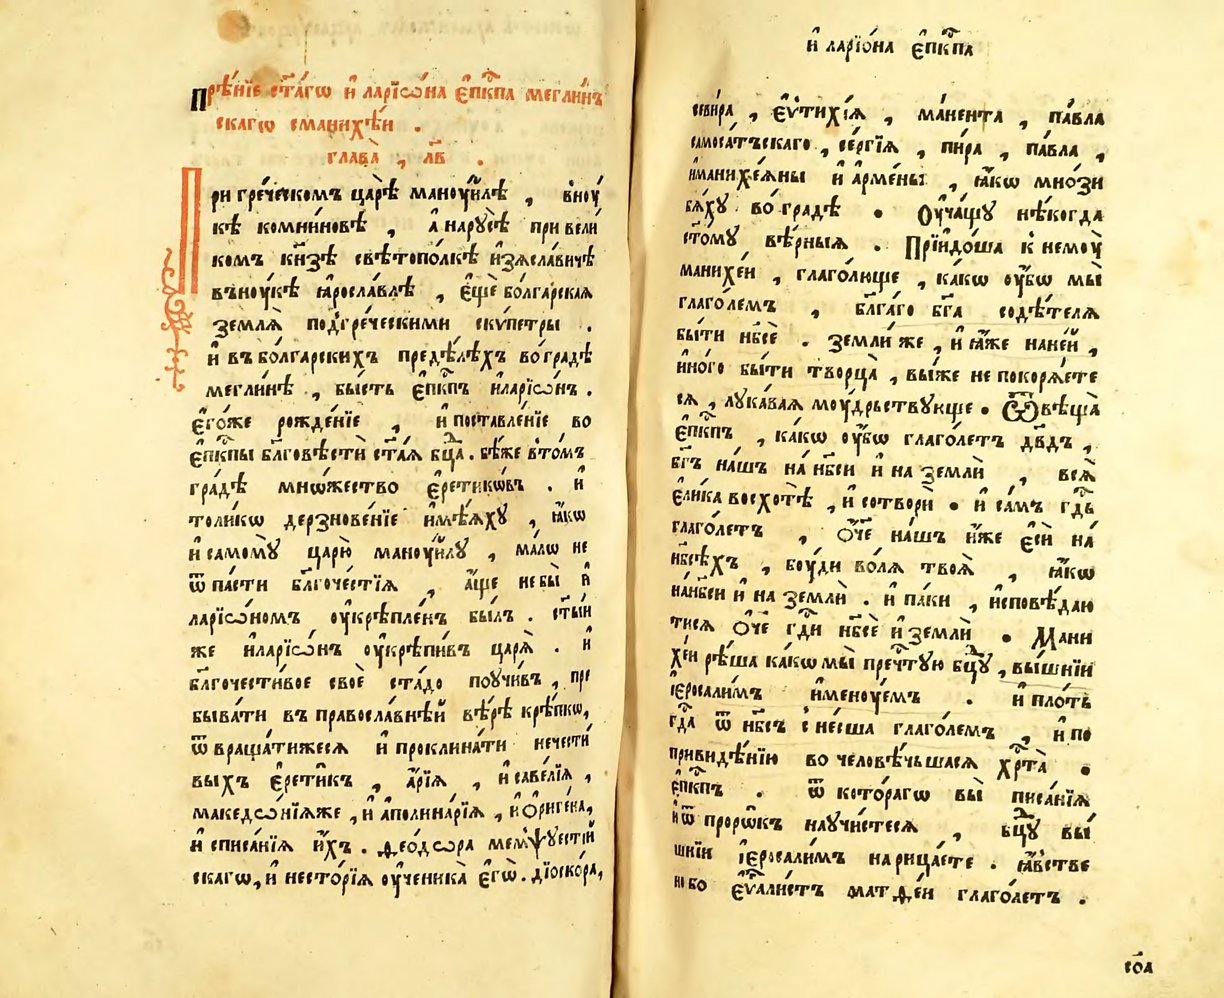 Прѣ́нїе ст҃а́гѡ и҆ ларїѡ́на є҆пкⷭ҇па меглі́нъ
скагѡ сманихѣ́и .
глава̀ , л҃в .
При грéческомъ царѣ̀ манꙋи́лѣ , внꙋ́
кѣ комни́новѣ , а҆ нарꙋсѣ̀ при вели́
комъ кн҃зѣ свѣтопо́лкѣ и҆зѧсла́вичѣ
внꙋ́кѣ ꙗ҆росла́влѣ , є҆щѐ болга́рская
землѧ̀ подгре́ческими ски́петры .
и҆ въ бо́лгарскихъ предѣ́лѣхъ во гра́дѣ
мегли́нѣ , бы́сть є҆пкⷭ҇пъ и҆ларїѡ́нъ .
є҆го́же рожде́нїе , и҆ поставле́нїе во
є҆пкⷭ҇пы бл҃говѣстѝ ст҃а́ѧ бцⷣа . бѣ́же вто́мъ
гра́дѣ мнѡ́жество є҆ретикѡ́въ . и҆
толи́кѡ дерзнове́нїе и҆мѣ́ѧхꙋ , ꙗ҆́кѡ
и҆ самомꙋ̀ царю̀ манꙋи́лꙋ , ма́лѡ не
ѿ па́сти бл҃гоче́стїѧ , а҆́ще не бы̀ и҆
ларїѡ́номъ ᲂу҆крѣпле́нъ бы́лъ . ст҃ы́и
же и҆ларїѡ́нъ ᲂу҆крѣпи́въ царѧ̀ . и҆
бл҃гочести́вое своѐ ста́до поꙋчи́въ , пре
быва́ти въ правосла́внѣй вѣ́рѣ крѣ́пкѡ,
ѿ враща́тижесѧ и҆ проклина́ти нечести́
выхъ є҆рети́къ , а҆́рїѧ , и҆ саве́лїѧ ,
македѡ́нїѧже , и҆ аполина́рїѧ , и҆ Ѻ҆риге́на,
и҆ списа́нїѧ и҆́хъ . ѳеодѡ́ра мемѱꙋести́й
скагѡ, и҆ несторїѧ ᲂу҆ченика̀ є҆гѡ̀ . дїоско́ра,
и҆ ларїо́на є҆пкⷭ҇па
севи́ра , є҆ѵти́хїѧ , мане́нта , па́вла
самоса́тъскаго , се́ргїѧ , пи́ра , па́вла ,
и҆манихе́ѧны и҆ а҆рме́ны , ꙗ҆́кѡ мно́зи
бѧ́хꙋ во гра́дѣ . Оу҆ча́щꙋ нѣ́когда
ст҃о́мꙋ вѣ́рныѧ . Прїидо́ша к немꙋ̀
манихе́и , глаго́лище , ка́кѡ ᲂу҆́бѡ мы̀
глаго́лемъ , бл҃га́го бг҃а содѣ́телѧ
бы́ти нб҃сѐ . земли́ же , и҆ ꙗ҆́же на не́й ,
и҆но́го бы́ти творца̀ , вы́же не покорѧ́ете
сѧ , лꙋка́ваѧ мꙋ́дрьствꙋюще . Ѿвѣща̀
є҆пкⷭ҇пъ , ка́кѡ ᲂу҆́бѡ глаго́летъ дв҃дъ ,
бг҃ъ на́шъ на нб҃си и҆ на землѝ , всѧ̀
є҆ли́ка восхотѣ̀ , и҆ сотворѝ . и҆ са́мъ гдⷭ҇ь
глаго́летъ , ѻ҆́ч҃е на́шъ и҆́же є҆сѝ на́
нб҃сѣ́хъ , бꙋ́ди во́лѧ твоѧ̀ , ꙗ҆́кѡ
на нб҃си и҆ на землѝ . и҆ па́ки , и҆сповѣ́даю
тисѧ ѻ҆́ч҃е гдⷭ҇и нб҃сѐ и҆ землѝ . Мани
хе́и рѣ́ша ка́кѡ мы̀ преч҃тꙋю бцⷣꙋ , вы́шнїи
і҆ерⷭ҇али́мъ и҆менꙋ́емъ . и҆ пло́ть
гдⷭ҇а ѿ нб҃съ сне́сша глаго́лемъ , и҆ по
привидѣ́нїю во человѣ́чьшасѧ хрⷭ҇та̀ .
є҆пкⷭ҇пъ . ѿ кото́рагѡ вы̀ писа́нїѧ
и҆ ѿ проро́къ наꙋчи́стесѧ , бцⷣꙋ вы́
шнїи і҆ерⷭ҇али́мъ нарица́ете . ꙗ҆́встве
но бо є҆ѵⷢ҇али́стъ матѳе́и глаго́летъ .
со҃а